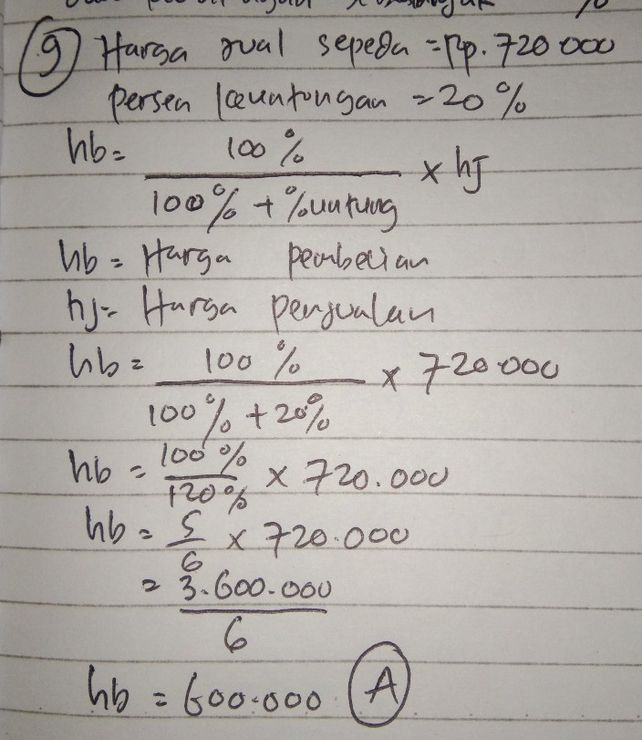 9 Harga jual sepeda = Rp. 720 000
persen keuntungan = 20 %
hb = 100 % / 100 % + % untung x hj
hb = Harga pembelian
hj = Harga penjualan
hb = 100 % / 100 % + 20% x 720.000
hb = 100 % / 120 % x 720.000
hb = 5 / 6 x 720.000
= 3.600.000 / 6
hb = 600.000 A